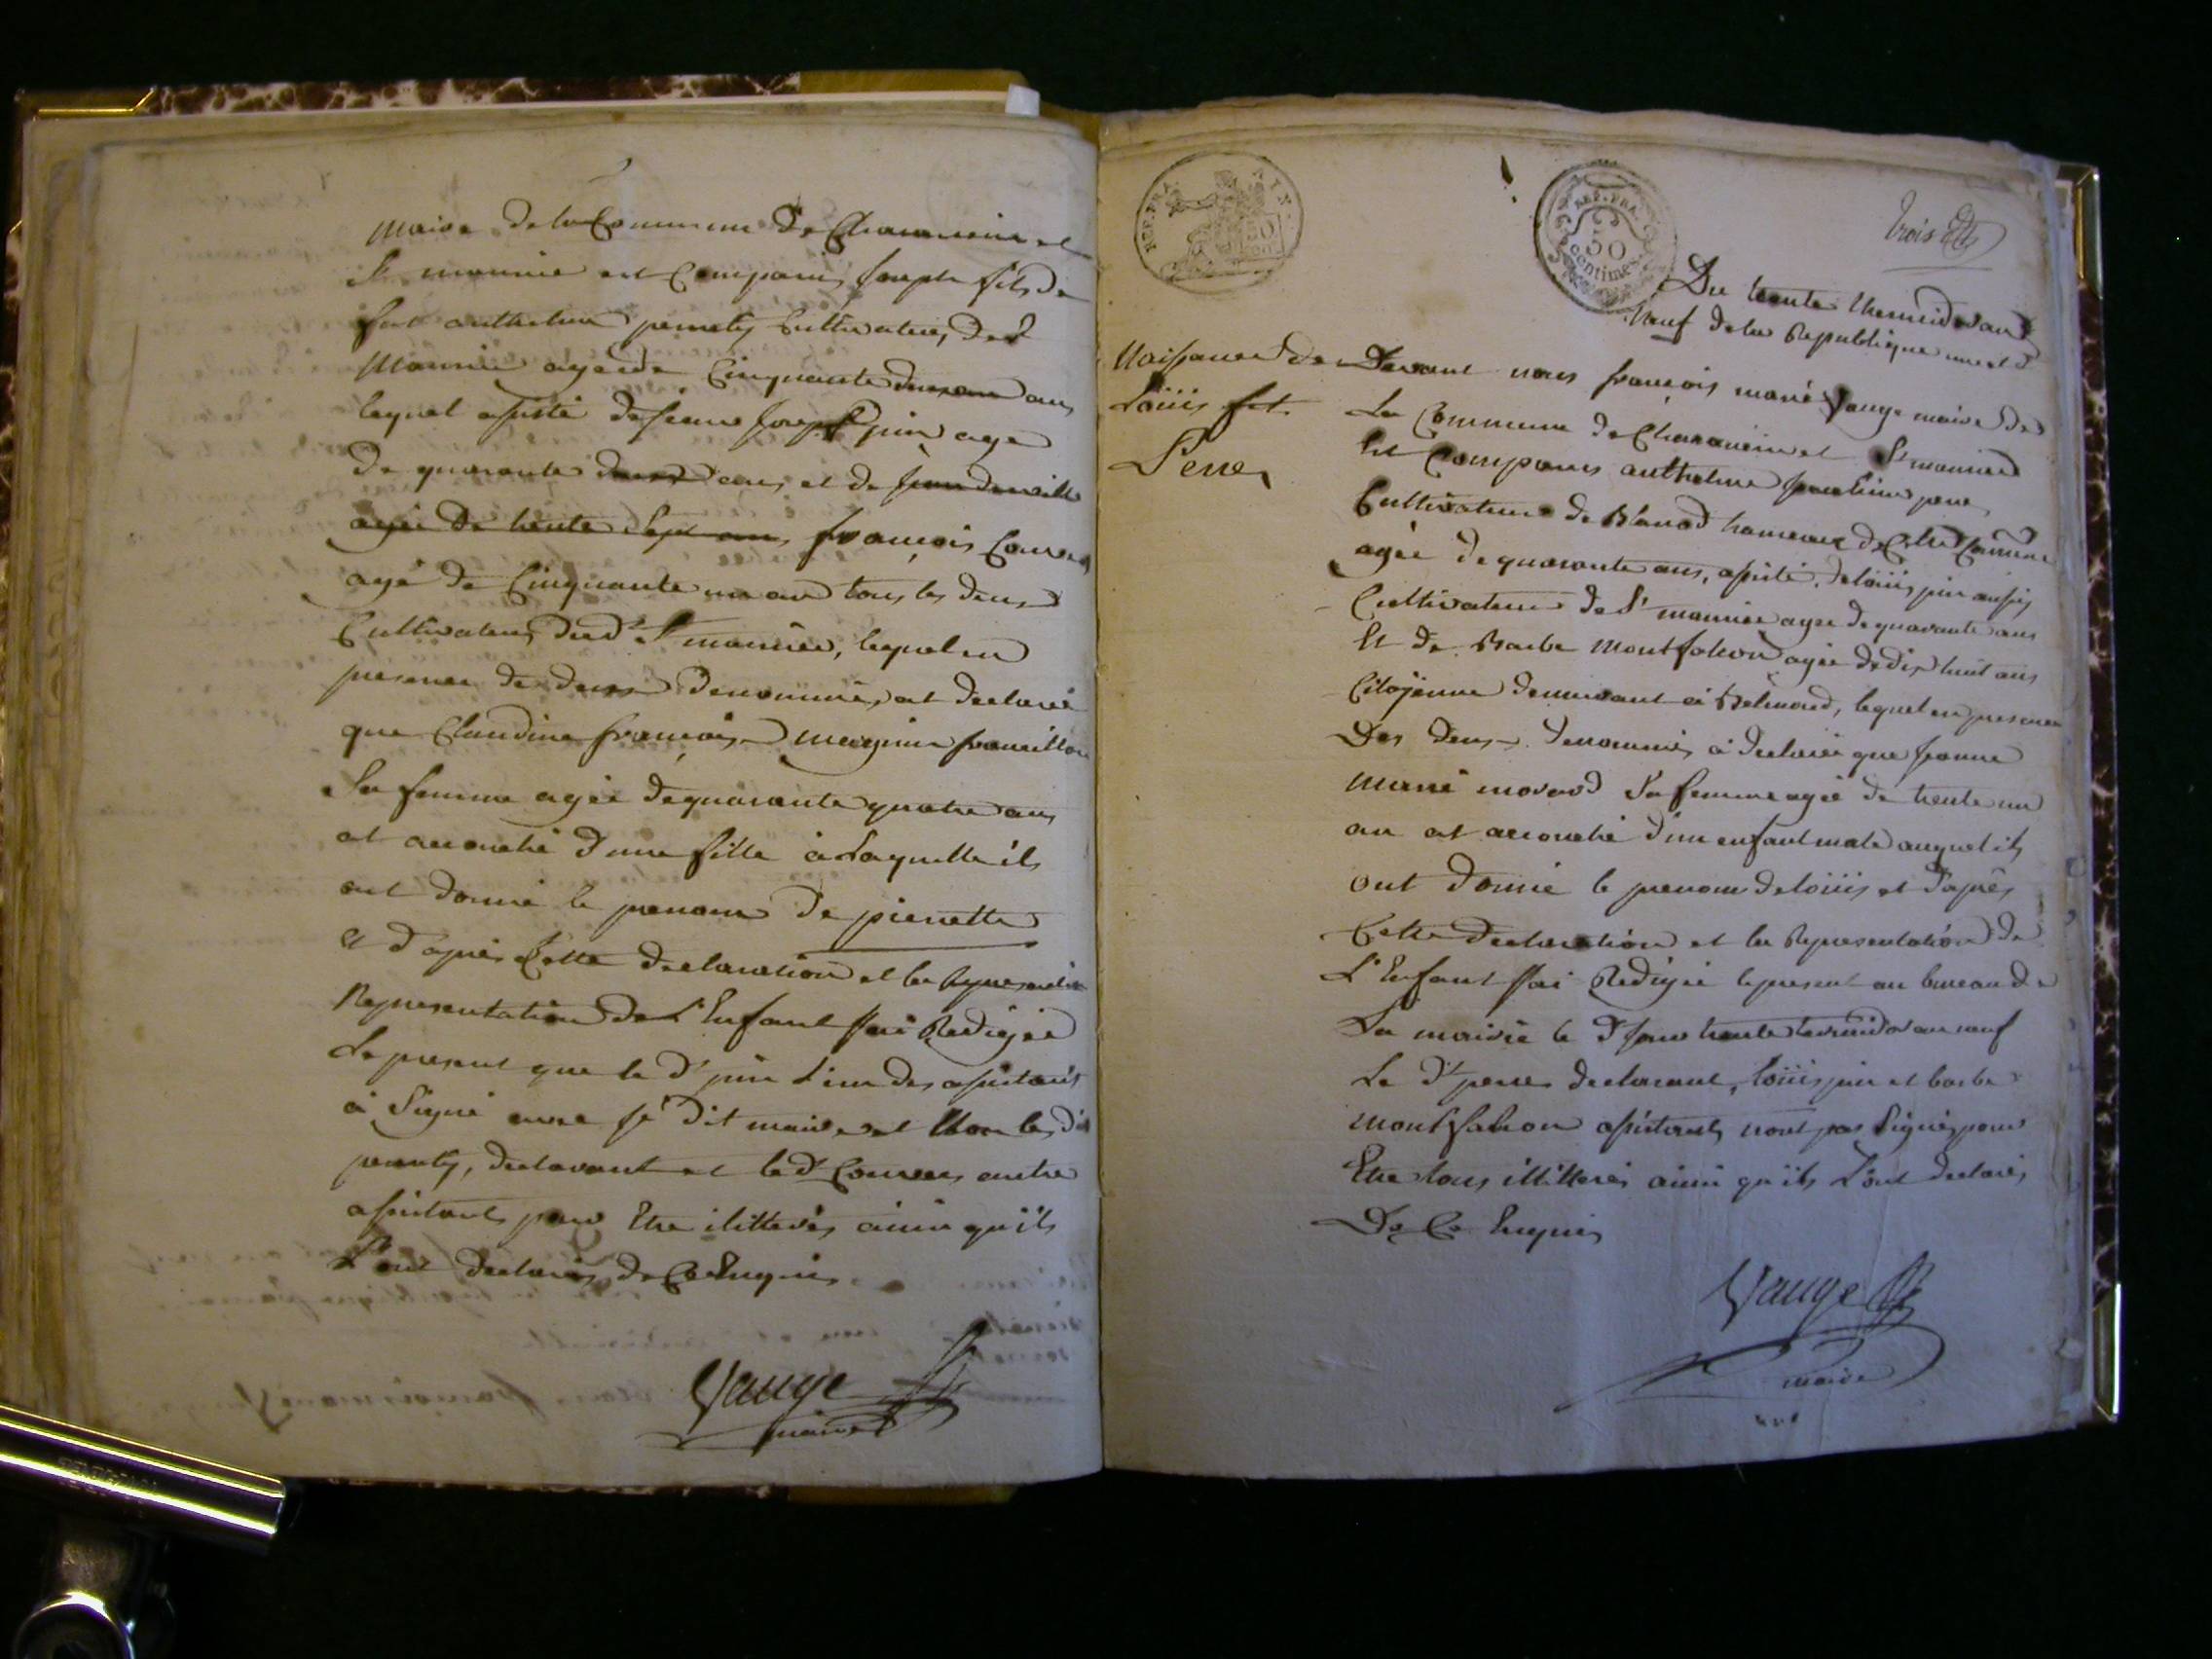 maire de la Commune de Charancin et
St maurice est Comparu joseph fils de
feu anthelme pernety Cultivateur, de St
Maurice agé de Cinquante deux ans ans
lequel assisté de sieurs joseph juin agé
De quarante deux ans, et de jean
agée de trente Sept ans, françois Couvers
agé de Cinquante un an tous les deux
Cultivateurs dud. St maurice, lequel en
presence des deux Denommés, at declaré
que Claudine françoise
Sa femme agée de quarante quatre ans
at accouché d'une fille à Laquelle ils
ont donné le prenom de pierrette
et d'apres Cette declaration et la
Representation de L'Enfant j'ai Redigée
Le present que le dt juin L'un des assistants
à Signé avec je dit maire et Non les dit
pernety, declarant et le dt Couvers autre
assistants pour Etre ilitterés ainsi qu'ils
L'ont declarés, de Ce Enquis
Vauge
maire
REP. FRA.
REP. FRA.
50
centimes
trois
Du trente thermidor an
Neuf de la Republique une et
Naissance de
Loüis
Perre
Devant nous françois marie Vauge maire de
La Commune de Charancin et St maurice
Est Comparus anthelme perre
Cultivateur de Blanod hameaux de Cette Commune
agée de quarante ans, assisté de loüis juin aussy
Cultivateur de St maurice agée de quarante ans
Et de Barbe Montfalcon agée de dix huit ans
Citoÿenne demeurant à Belmond, lequel en presence
Des deux Denommés à declaré que jeanne
Marie morard Sa femme agée de trente un
an at accouché d'un enfant male auquel ils
ont donné le prenom de loüis et d'apres
Cette declaration et la Representation de
L'Enfant j'ai Redigée le present au bureau de
La mairie le dt jour trente termidor an neuf
Le dt perre declarant, loüis juin et barbe
montfalcon assistants n'ont pas Signés pour
Etre tous illitterés ainsi qu'ils L'ont declarés
De Ce Enquis
Vauge
maire